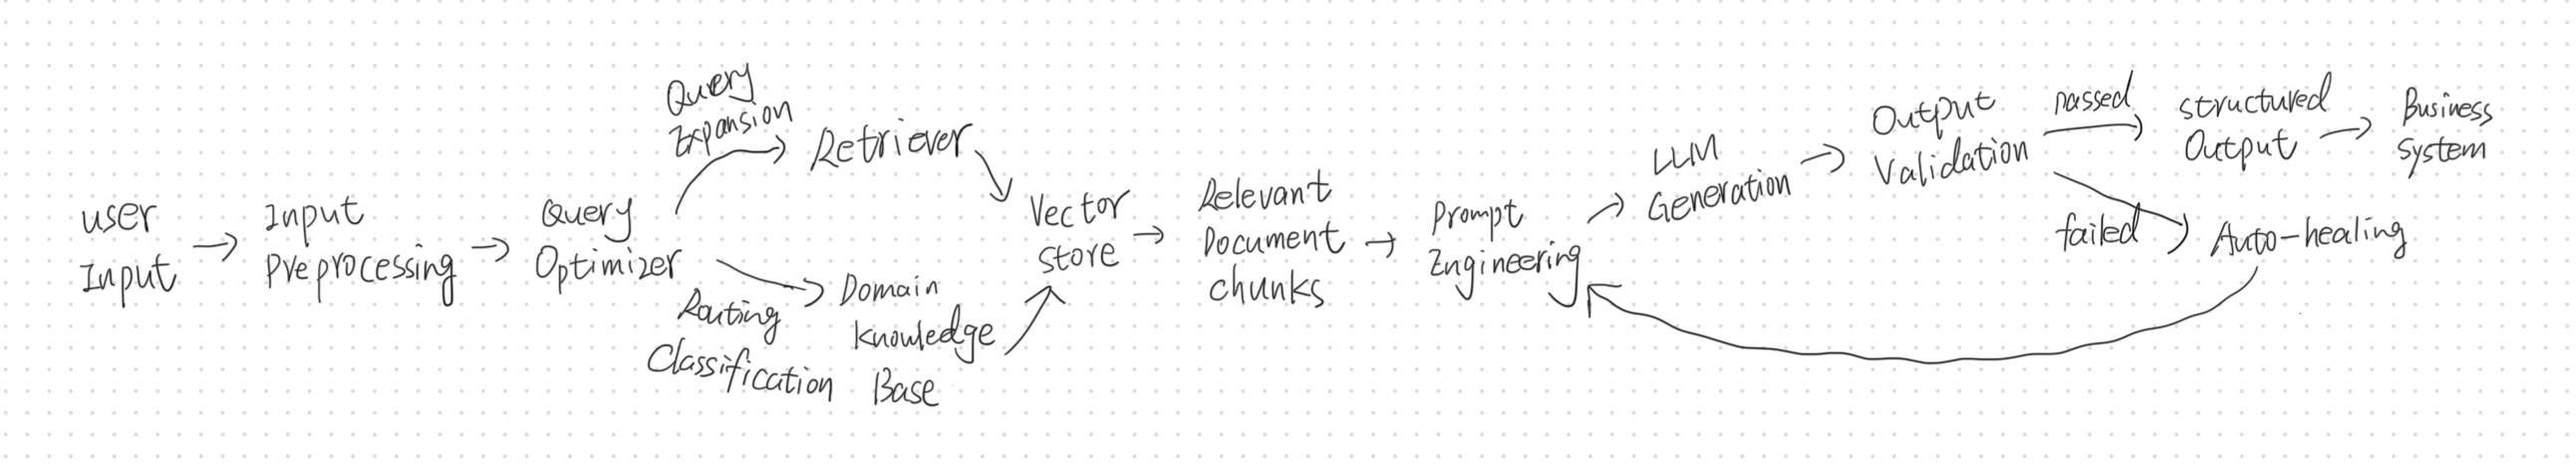 user
Input
Input
Preprocessing
Query
Optimizer
Query
Expansion
Retriever
Routing
Classification
Domain
knowledge
Base
Vector
store
Relevant
Document
chunks
Prompt
Engineering
LLM
Generation
Output
Validation
passed
structured
Output
Business
system
failed
Auto-healing